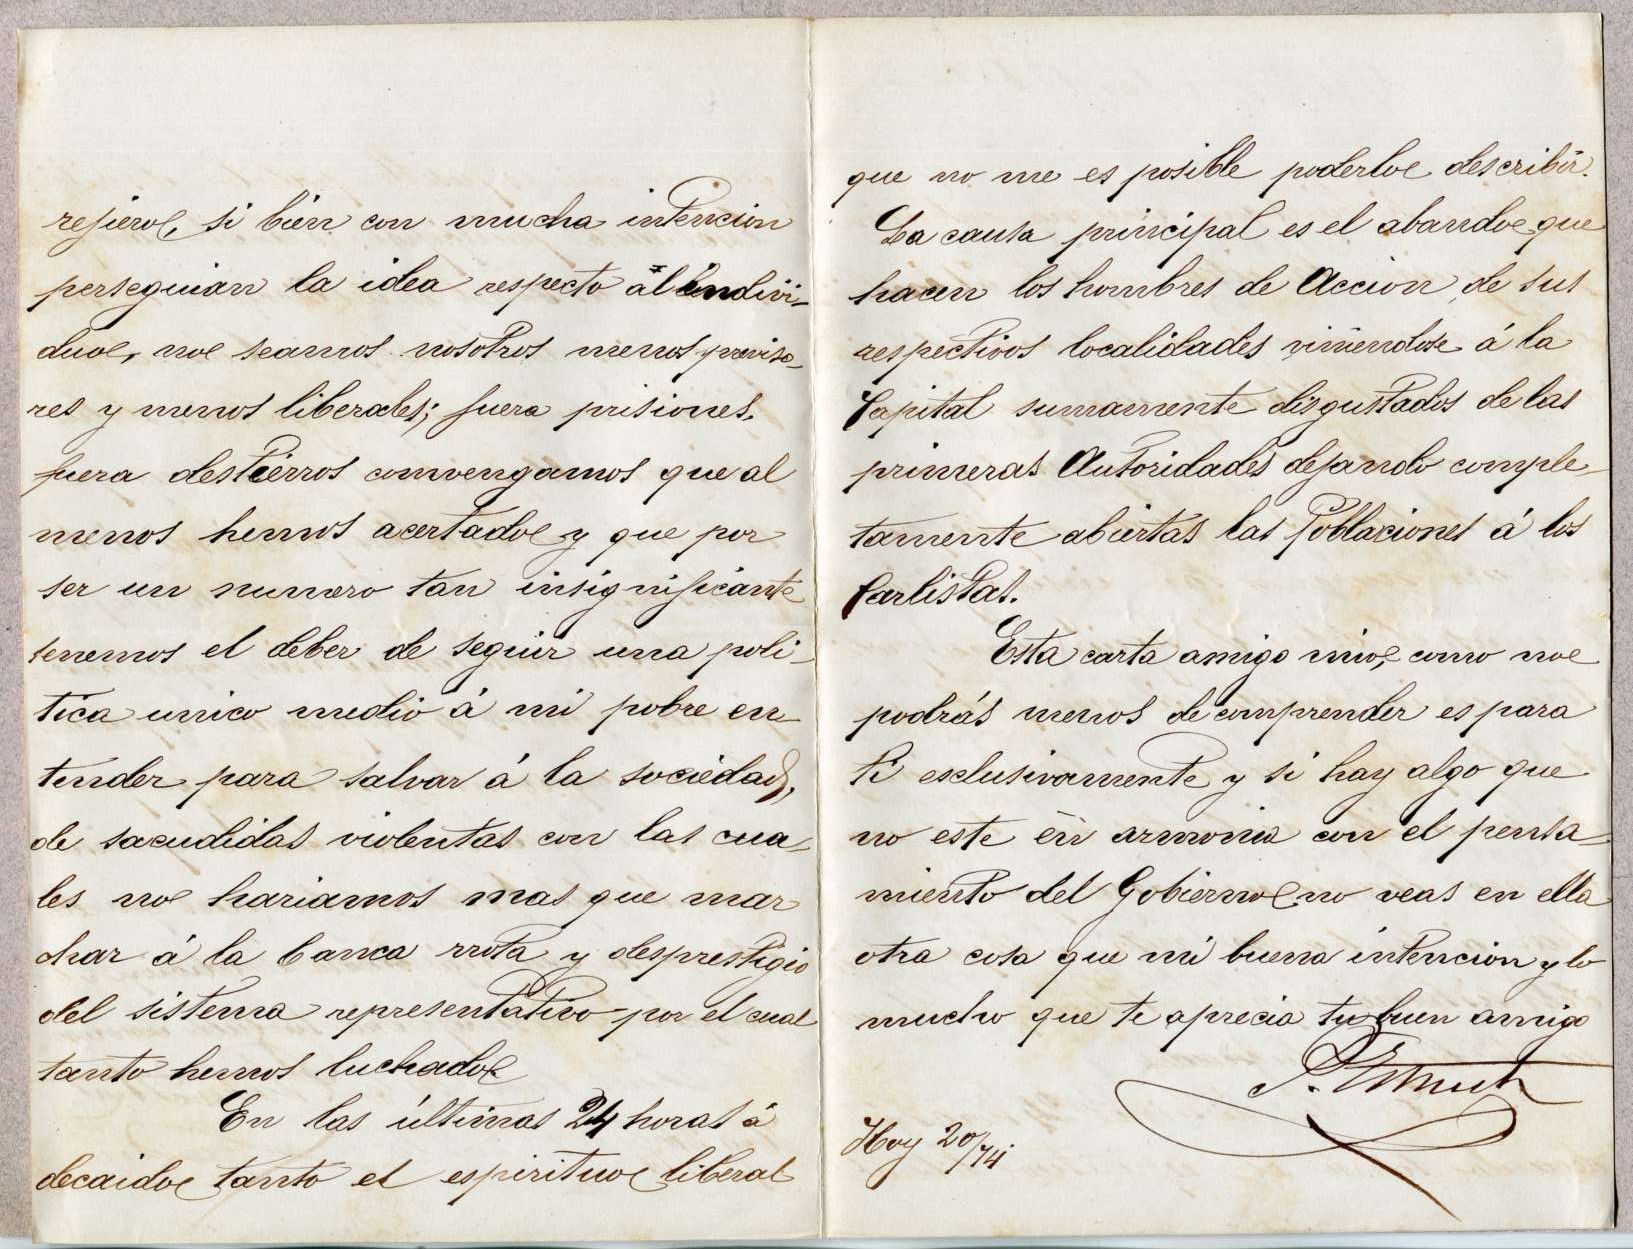 refiero, si bien con mucha intencion
perseguian la idea respecto al indivi-
duo, no seamos nosotros menos previso-
res y menos liberales; fuera prisiones,
fuera destierros convengamos que al
menos hemos acertado y que por
ser un numero tan insignificante
tenemos el deber de seguir una poli-
tica unico medio á mi pobre en-
tender para salvar á la sociedad,
de sacudidas violentas con las cua-
les no hariamos mas que mar
char á la banca rrota y desprestigio
del sistema representativo por el cual
tanto hemos luchado
En las últimas 24 horas á
decaido tanto el espiritu liberal
que no me es posible poderlo describir.
La causa principal es el abando que
hacen los hombres de Accion de sus
respectivos localidades viniendose á la
Capital sumamente disgustados de las
primeras Autoridades dejando comple-
tamente abiertas las Poblaciones á los
Carlistas.
Esta carta amigo mio, como no
podrás menos de comprender es para
ti esclusivamente y si hay algo que
no este en armonia con el pensa-
miento del Gobierno no veas en ella
otra cosa que mi buena intencion y lo
mucho que te aprecia tu buen amigo
Hoy 20/74